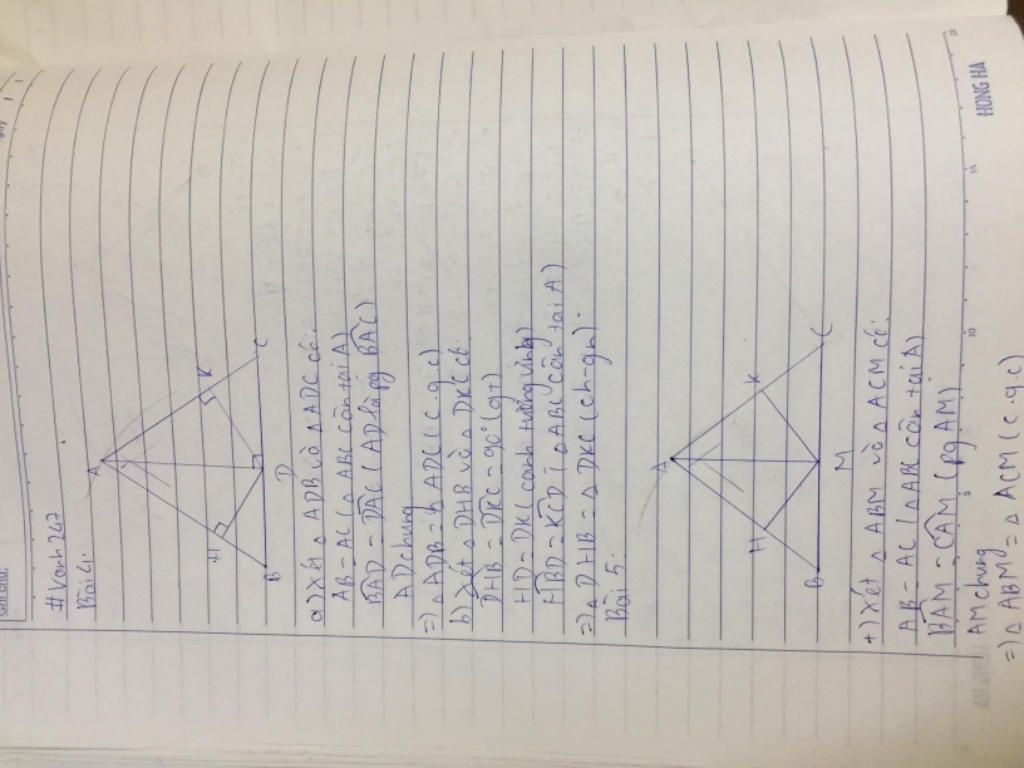 #Xanh247
Bài 4:
A
H
K
B
D
C
a) Xét △ADB và △ADC có:
AB = AC (△ABC cân tại A)
BAD = DAC (AD là pg BAC)
AD chung
=) △ADB = △ADC (c.g.c)
b) Xét △DHB và △DKC có:
DHB = DKC = 90° (gt)
HD = DK (cạnh tương ứng)
HBD = KCD (△ABC cân tại A)
=) △DHB = △DKC (ch-gn)
Bài 5:
A
H
K
B
M
C
+) Xét △ABM và △ACM có:
AB = AC (△ABC cân tại A)
BAM = CAM (pg AM)
AM chung
=) △ABM = △ACM (c.g.c)
HONG HA
5
10
15
20